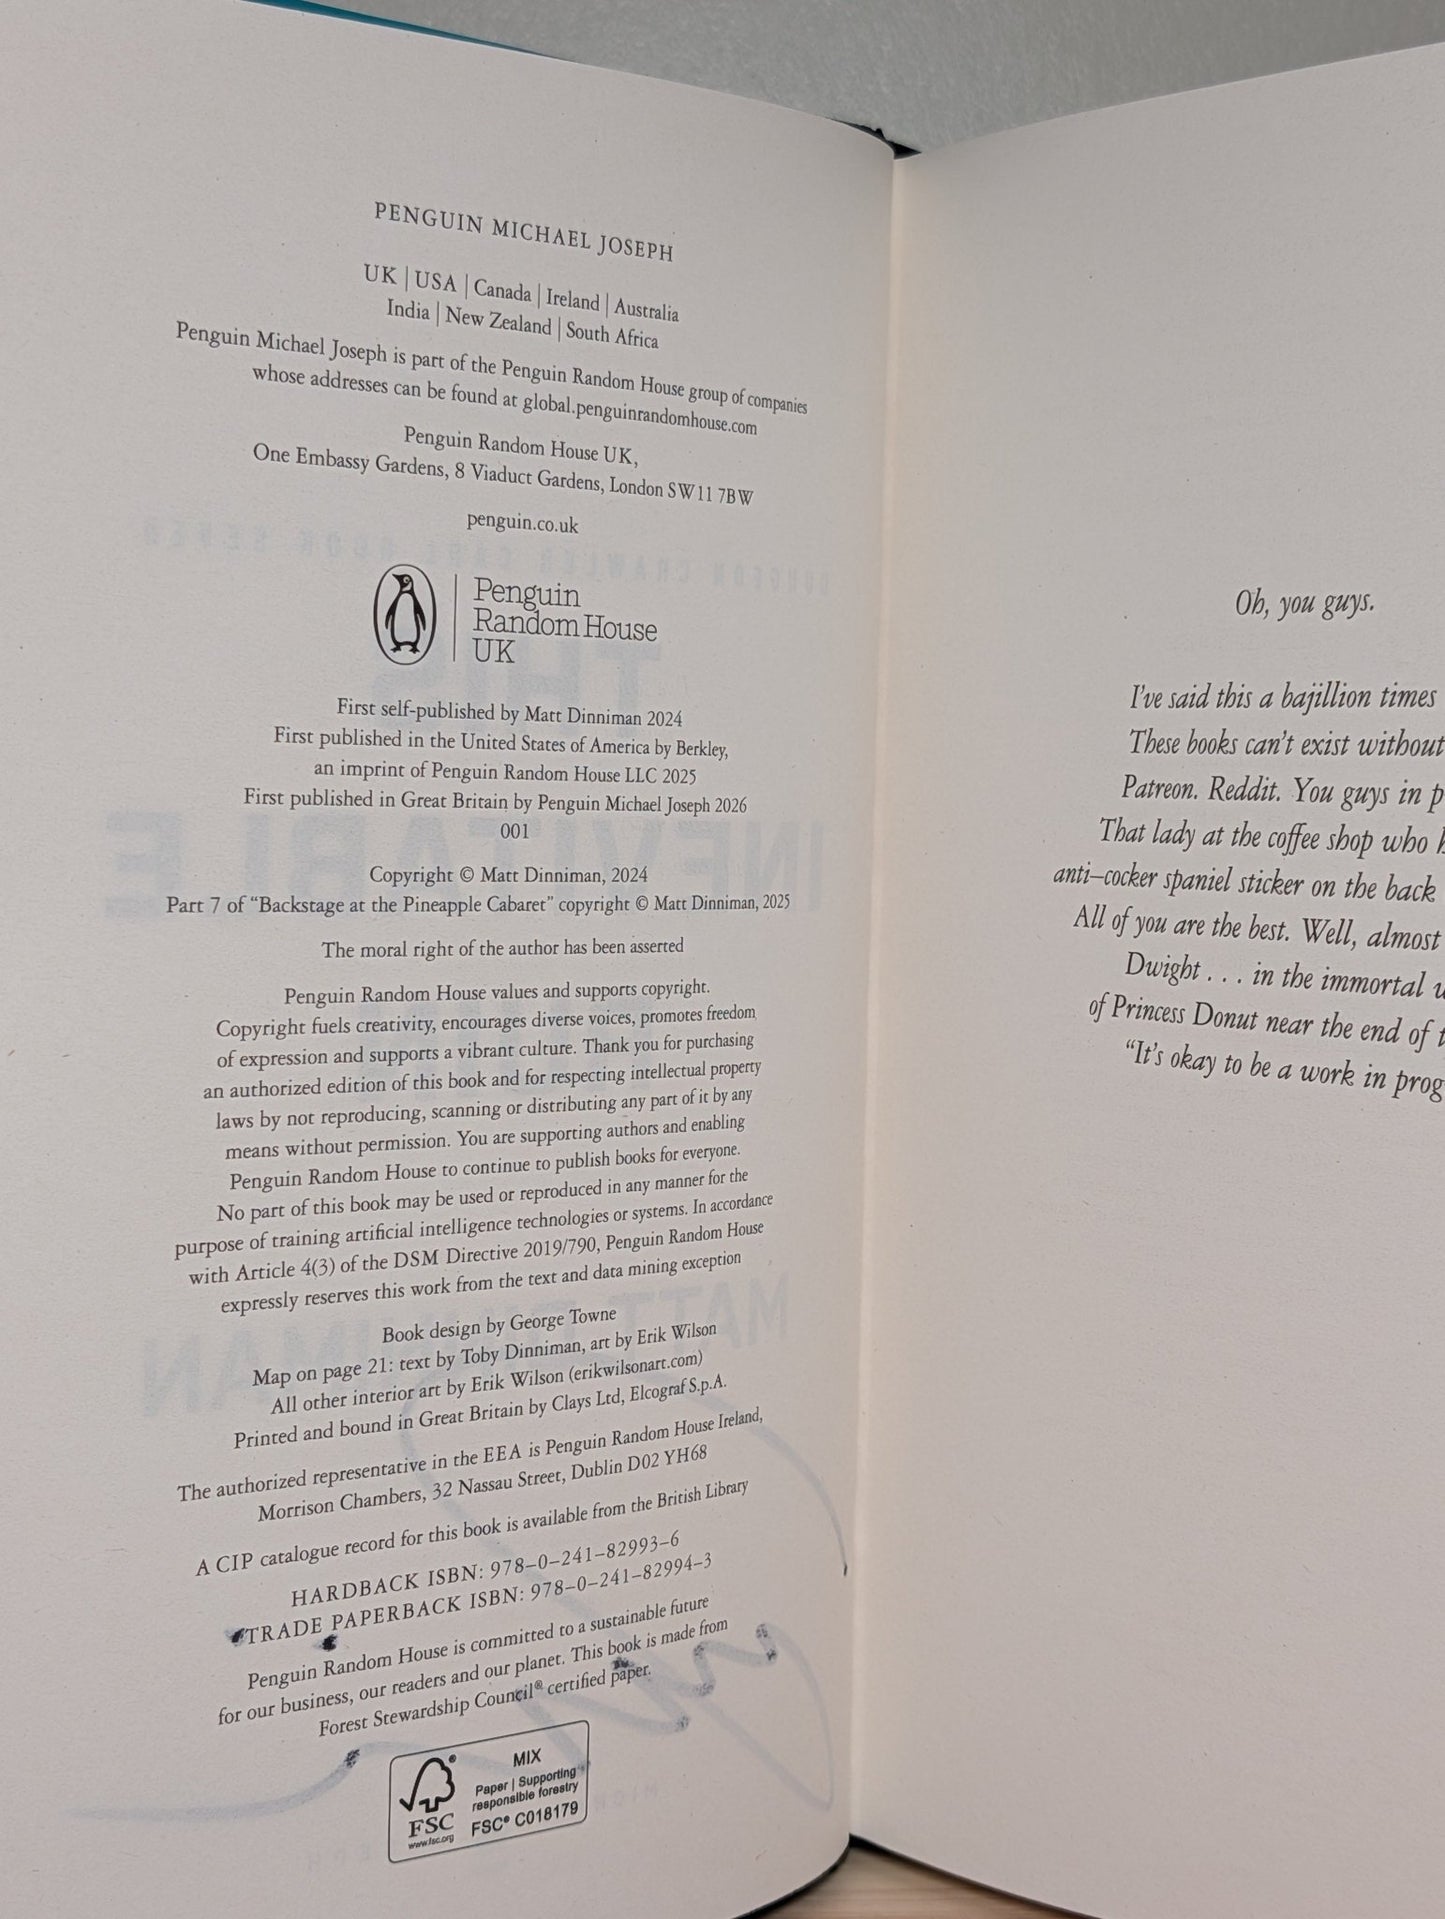 PENGUIN MICHAEL JOSEPH
UK | USA | Canada | Ireland | Australia
India | New Zealand | South Africa
Penguin Michael Joseph is part of the Penguin Random House group of companies
whose addresses can be found at global.penguinrandomhouse.com
Penguin Random House UK,
One Embassy Gardens, 8 Viaduct Gardens, London SW11 7BW
penguin.co.uk
Penguin
Random House
UK
First self-published by Matt Dinniman 2024
First published in the United States of America by Berkley,
an imprint of Penguin Random House LLC 2025
First published in Great Britain by Penguin Michael Joseph 2026
001
Copyright © Matt Dinniman, 2024
Part 7 of “Backstage at the Pineapple Cabaret” copyright © Matt Dinniman, 2025
The moral right of the author has been asserted
Penguin Random House values and supports copyright.
Copyright fuels creativity, encourages diverse voices, promotes freedom
of expression and supports a vibrant culture. Thank you for purchasing
an authorized edition of this book and for respecting intellectual property
laws by not reproducing, scanning or distributing any part of it by any
means without permission. You are supporting authors and enabling
Penguin Random House to continue to publish books for everyone.
No part of this book may be used or reproduced in any manner for the
purpose of training artificial intelligence technologies or systems. In accordance
with Article 4(3) of the DSM Directive 2019/790, Penguin Random House
expressly reserves this work from the text and data mining exception
Book design by George Towne
Map on page 21: text by Toby Dinniman, art by Erik Wilson
All other interior art by Erik Wilson (erikwilsonart.com)
Printed and bound in Great Britain by Clays Ltd, Elcograf S.p.A.
The authorized representative in the EEA is Penguin Random House Ireland,
Morrison Chambers, 32 Nassau Street, Dublin D02 YH68
A CIP catalogue record for this book is available from the British Library
HARDBACK ISBN: 978–0–241–82993–6
TRADE PAPERBACK ISBN: 978–0–241–82994–3
Penguin Random House is committed to a sustainable future
for our business, our readers and our planet. This book is made from
Forest Stewardship Council® certified paper.
MIX
Paper | Supporting
responsible forestry
FSC® C018179
FSC
www.fsc.org
Oh, you guys.
I’ve said this a bajillion times
These books can’t exist without
Patreon. Reddit. You guys in p
That lady at the coffee shop who
anti–cocker spaniel sticker on the back
All of you are the best. Well, almost
Dwight . . . in the immortal
of Princess Donut near the end of t
“It’s okay to be a work in prog